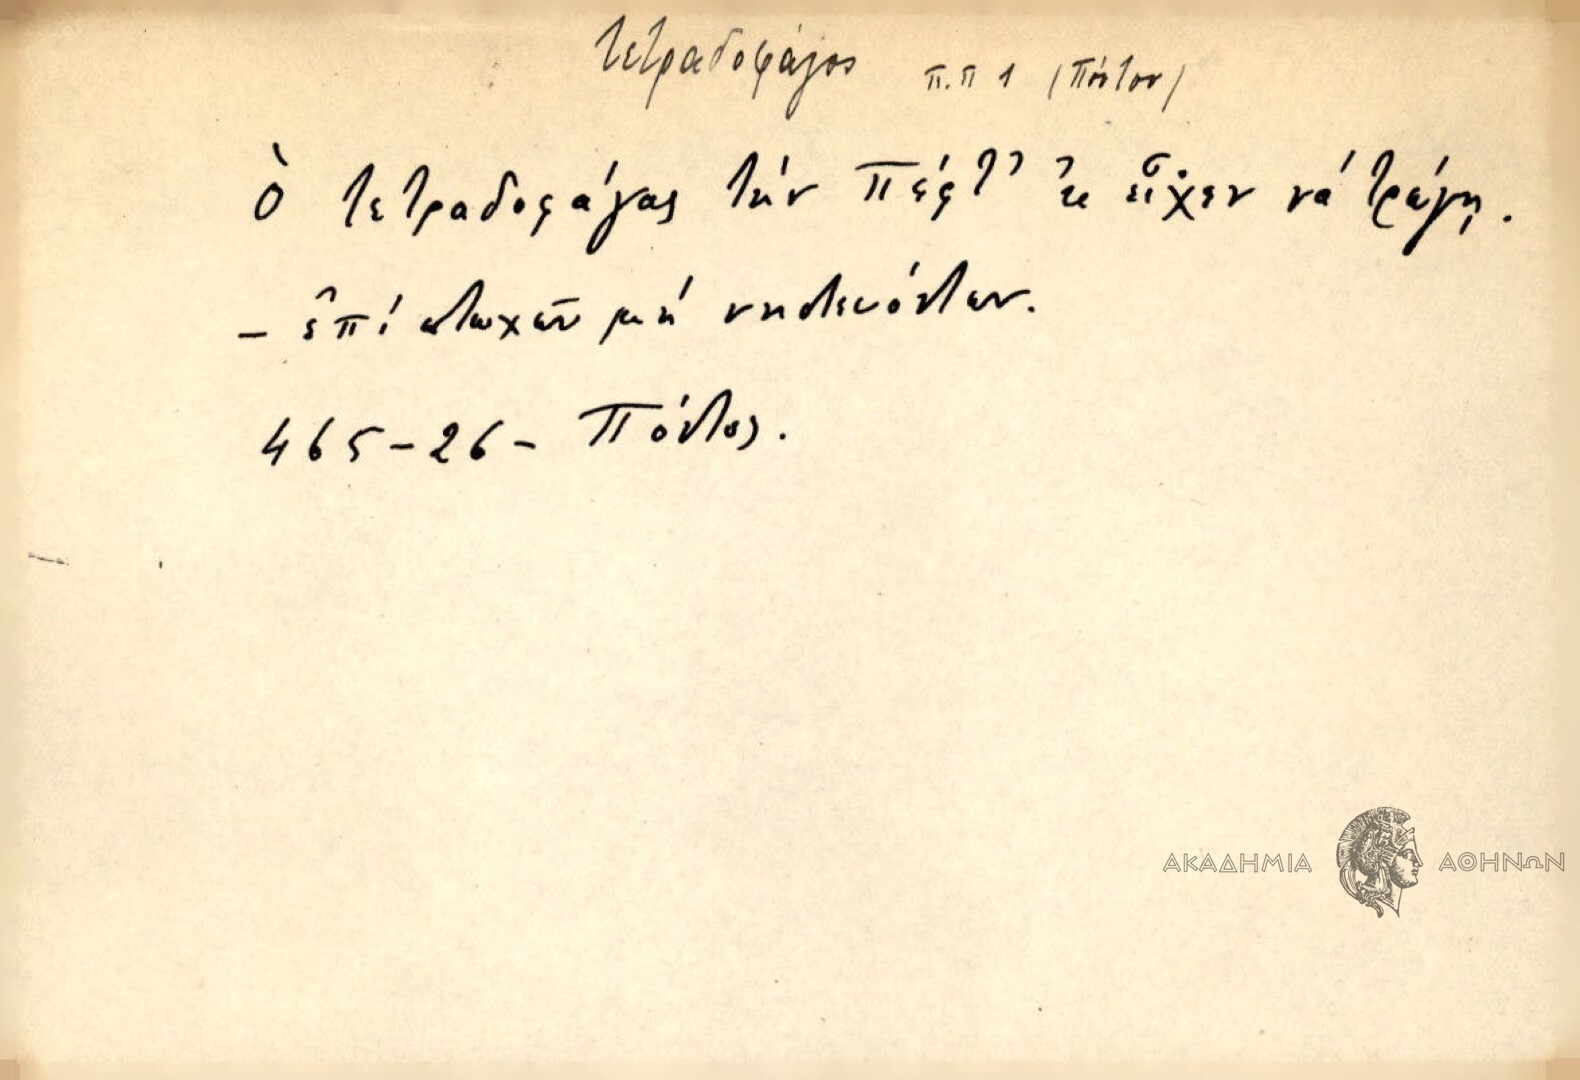 τετραδοφάγος π.π 1 (Πόντου)
Ὁ τετραδοφάγας τήν Πέφτ' 'κ εἶχεν νά τρώγῃ.
– ἐπί πτωχῶν μή νηστευόντων.
465-26- Πόντος.
ΑΚΑΔΗΜΙΑ ΑΘΗΝΩΝ